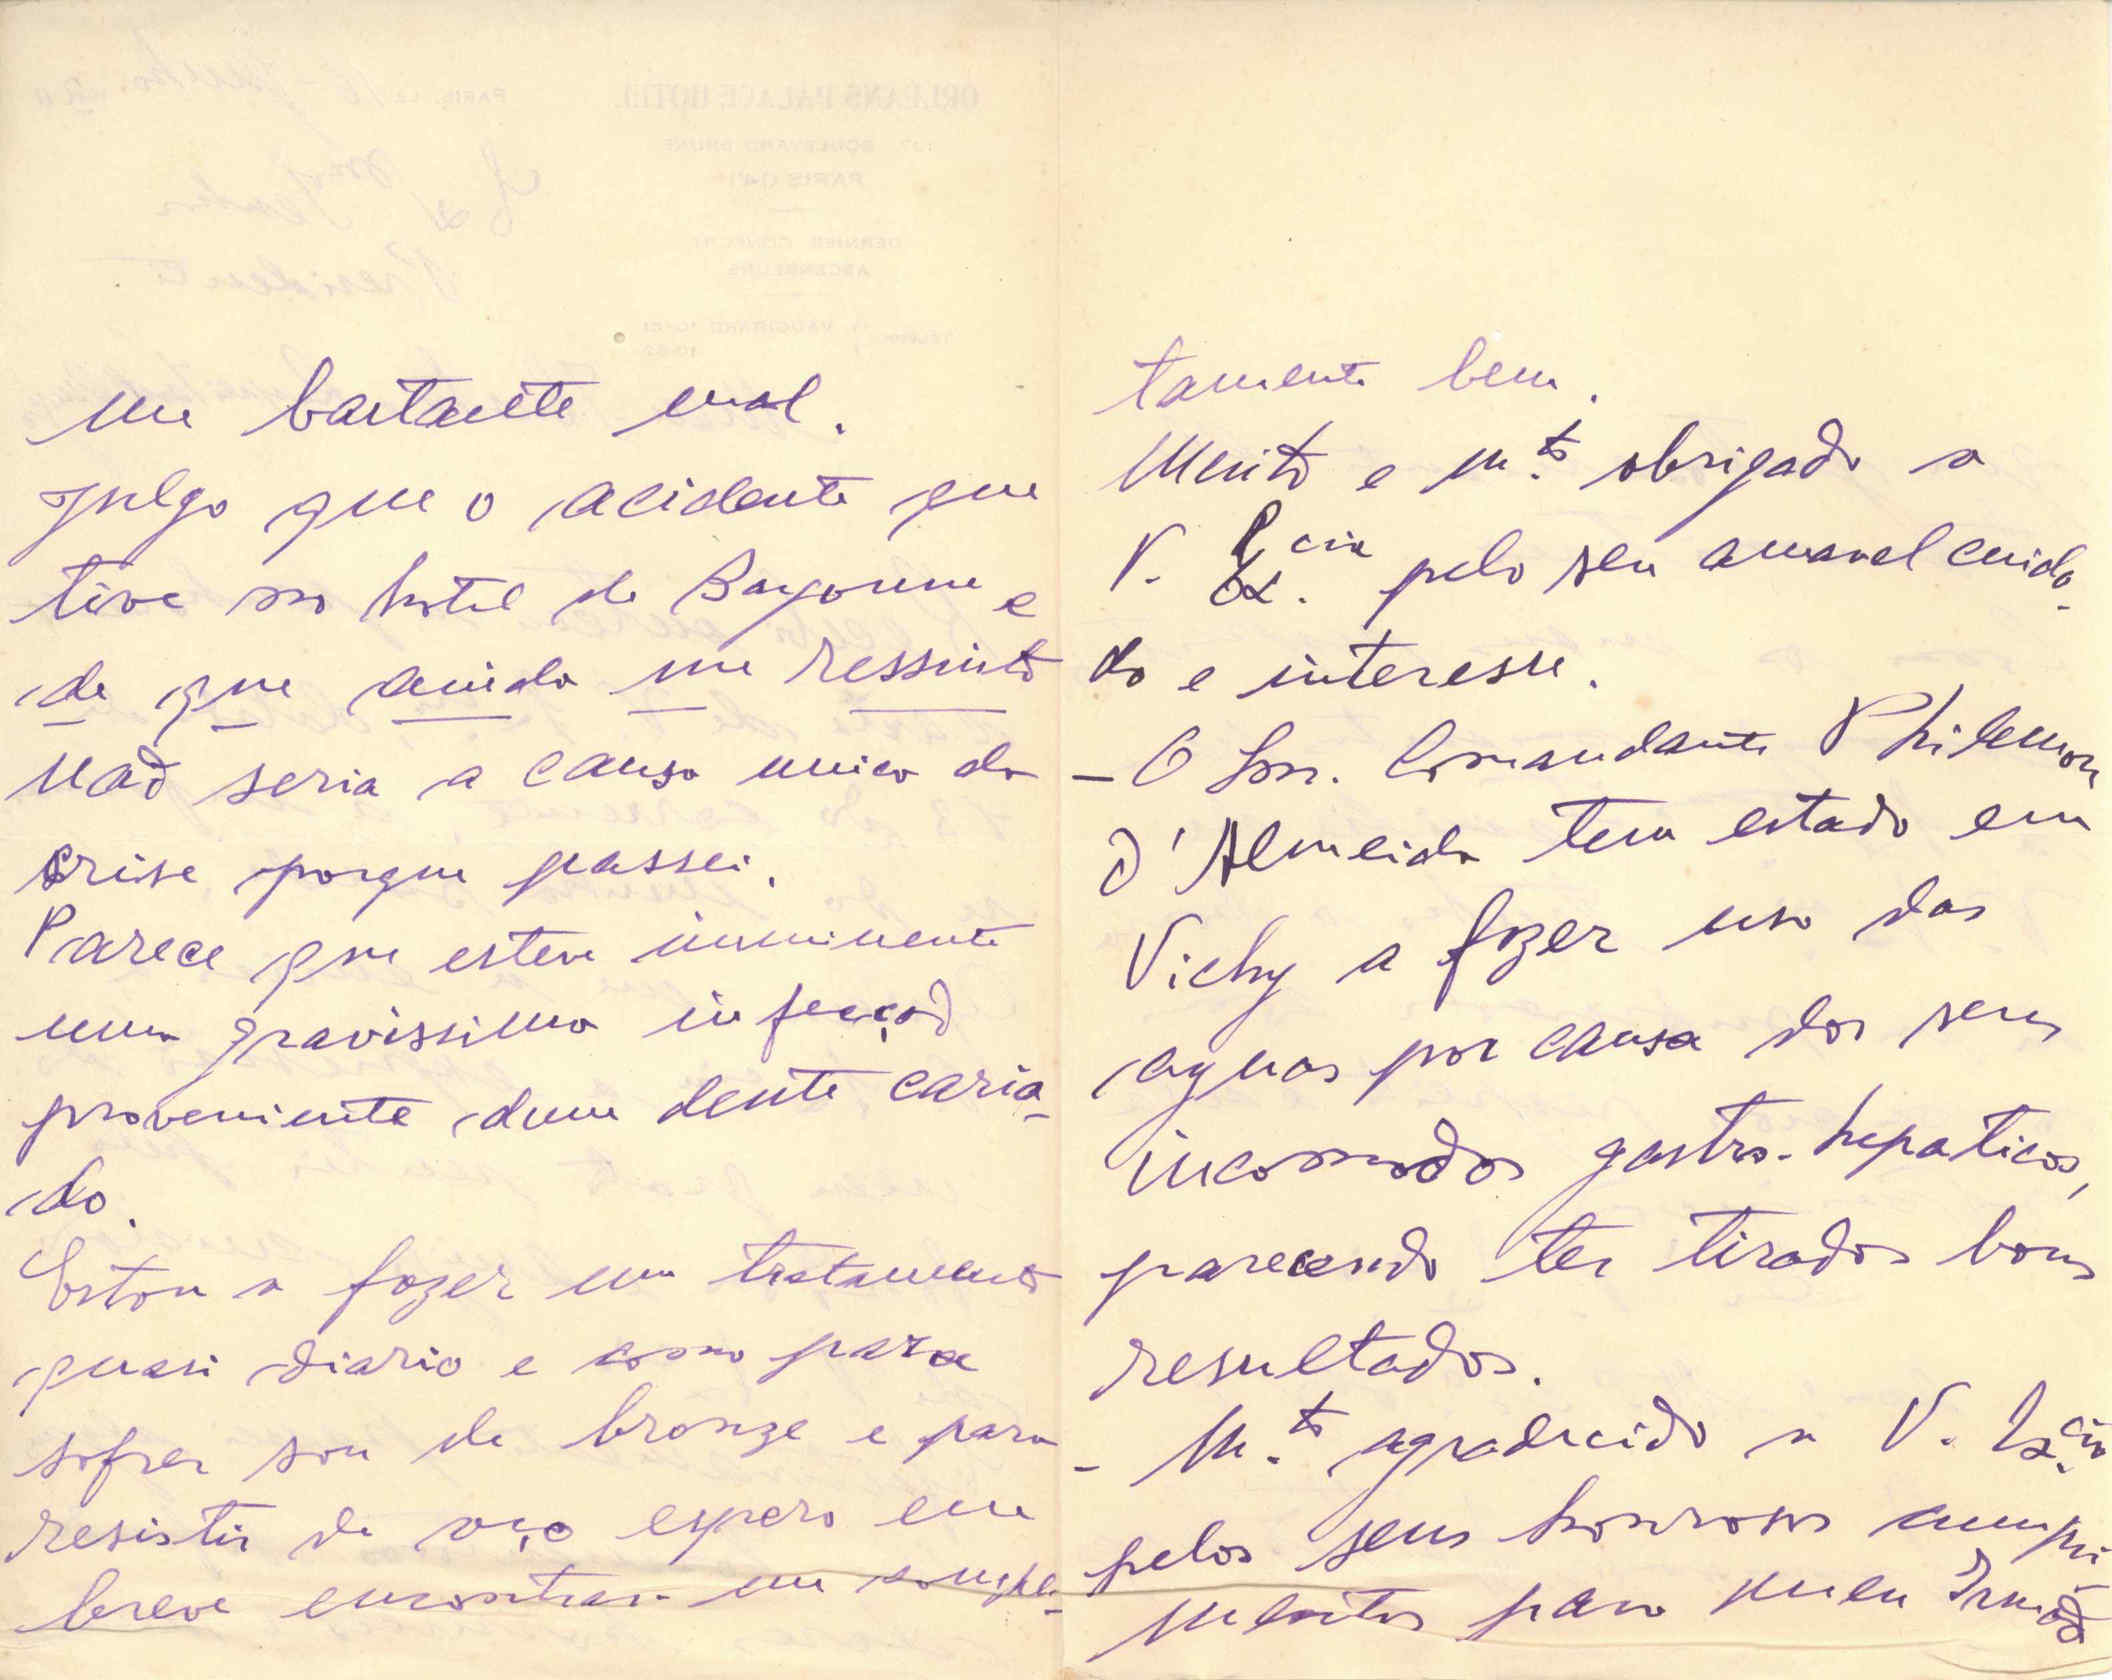 me bastante mal.
Julgo que o acidente que
tive no hotel de Bayonne e
de que ainda me ressinto
não seria a causa unica da
crise porque passei.
Parece que esteve imminente
uma gravissima infecção
proveniente dum dente caria-
do.
Estou a fazer um tratamento
quasi diario e como para
sofrer sou de bronze e para
resistir de aço espero em
breve encontrar-me comple-
tamente bem.
Muito e m.to obrigado a
V. Ex.cia pelo seu amavel cuida-
do e interesse.
- O Snr. Comandante Philemon
d'Almeida tem estado em
Vichy a fazer uso das
aguas por causa dos seus
incomodos gastro-hepaticos,
parecendo ter tirados bons
resultados.
- M.to agradecido a V. Ex.cia
pelos seus honrosos cumpri-
mentos para meu Irmão